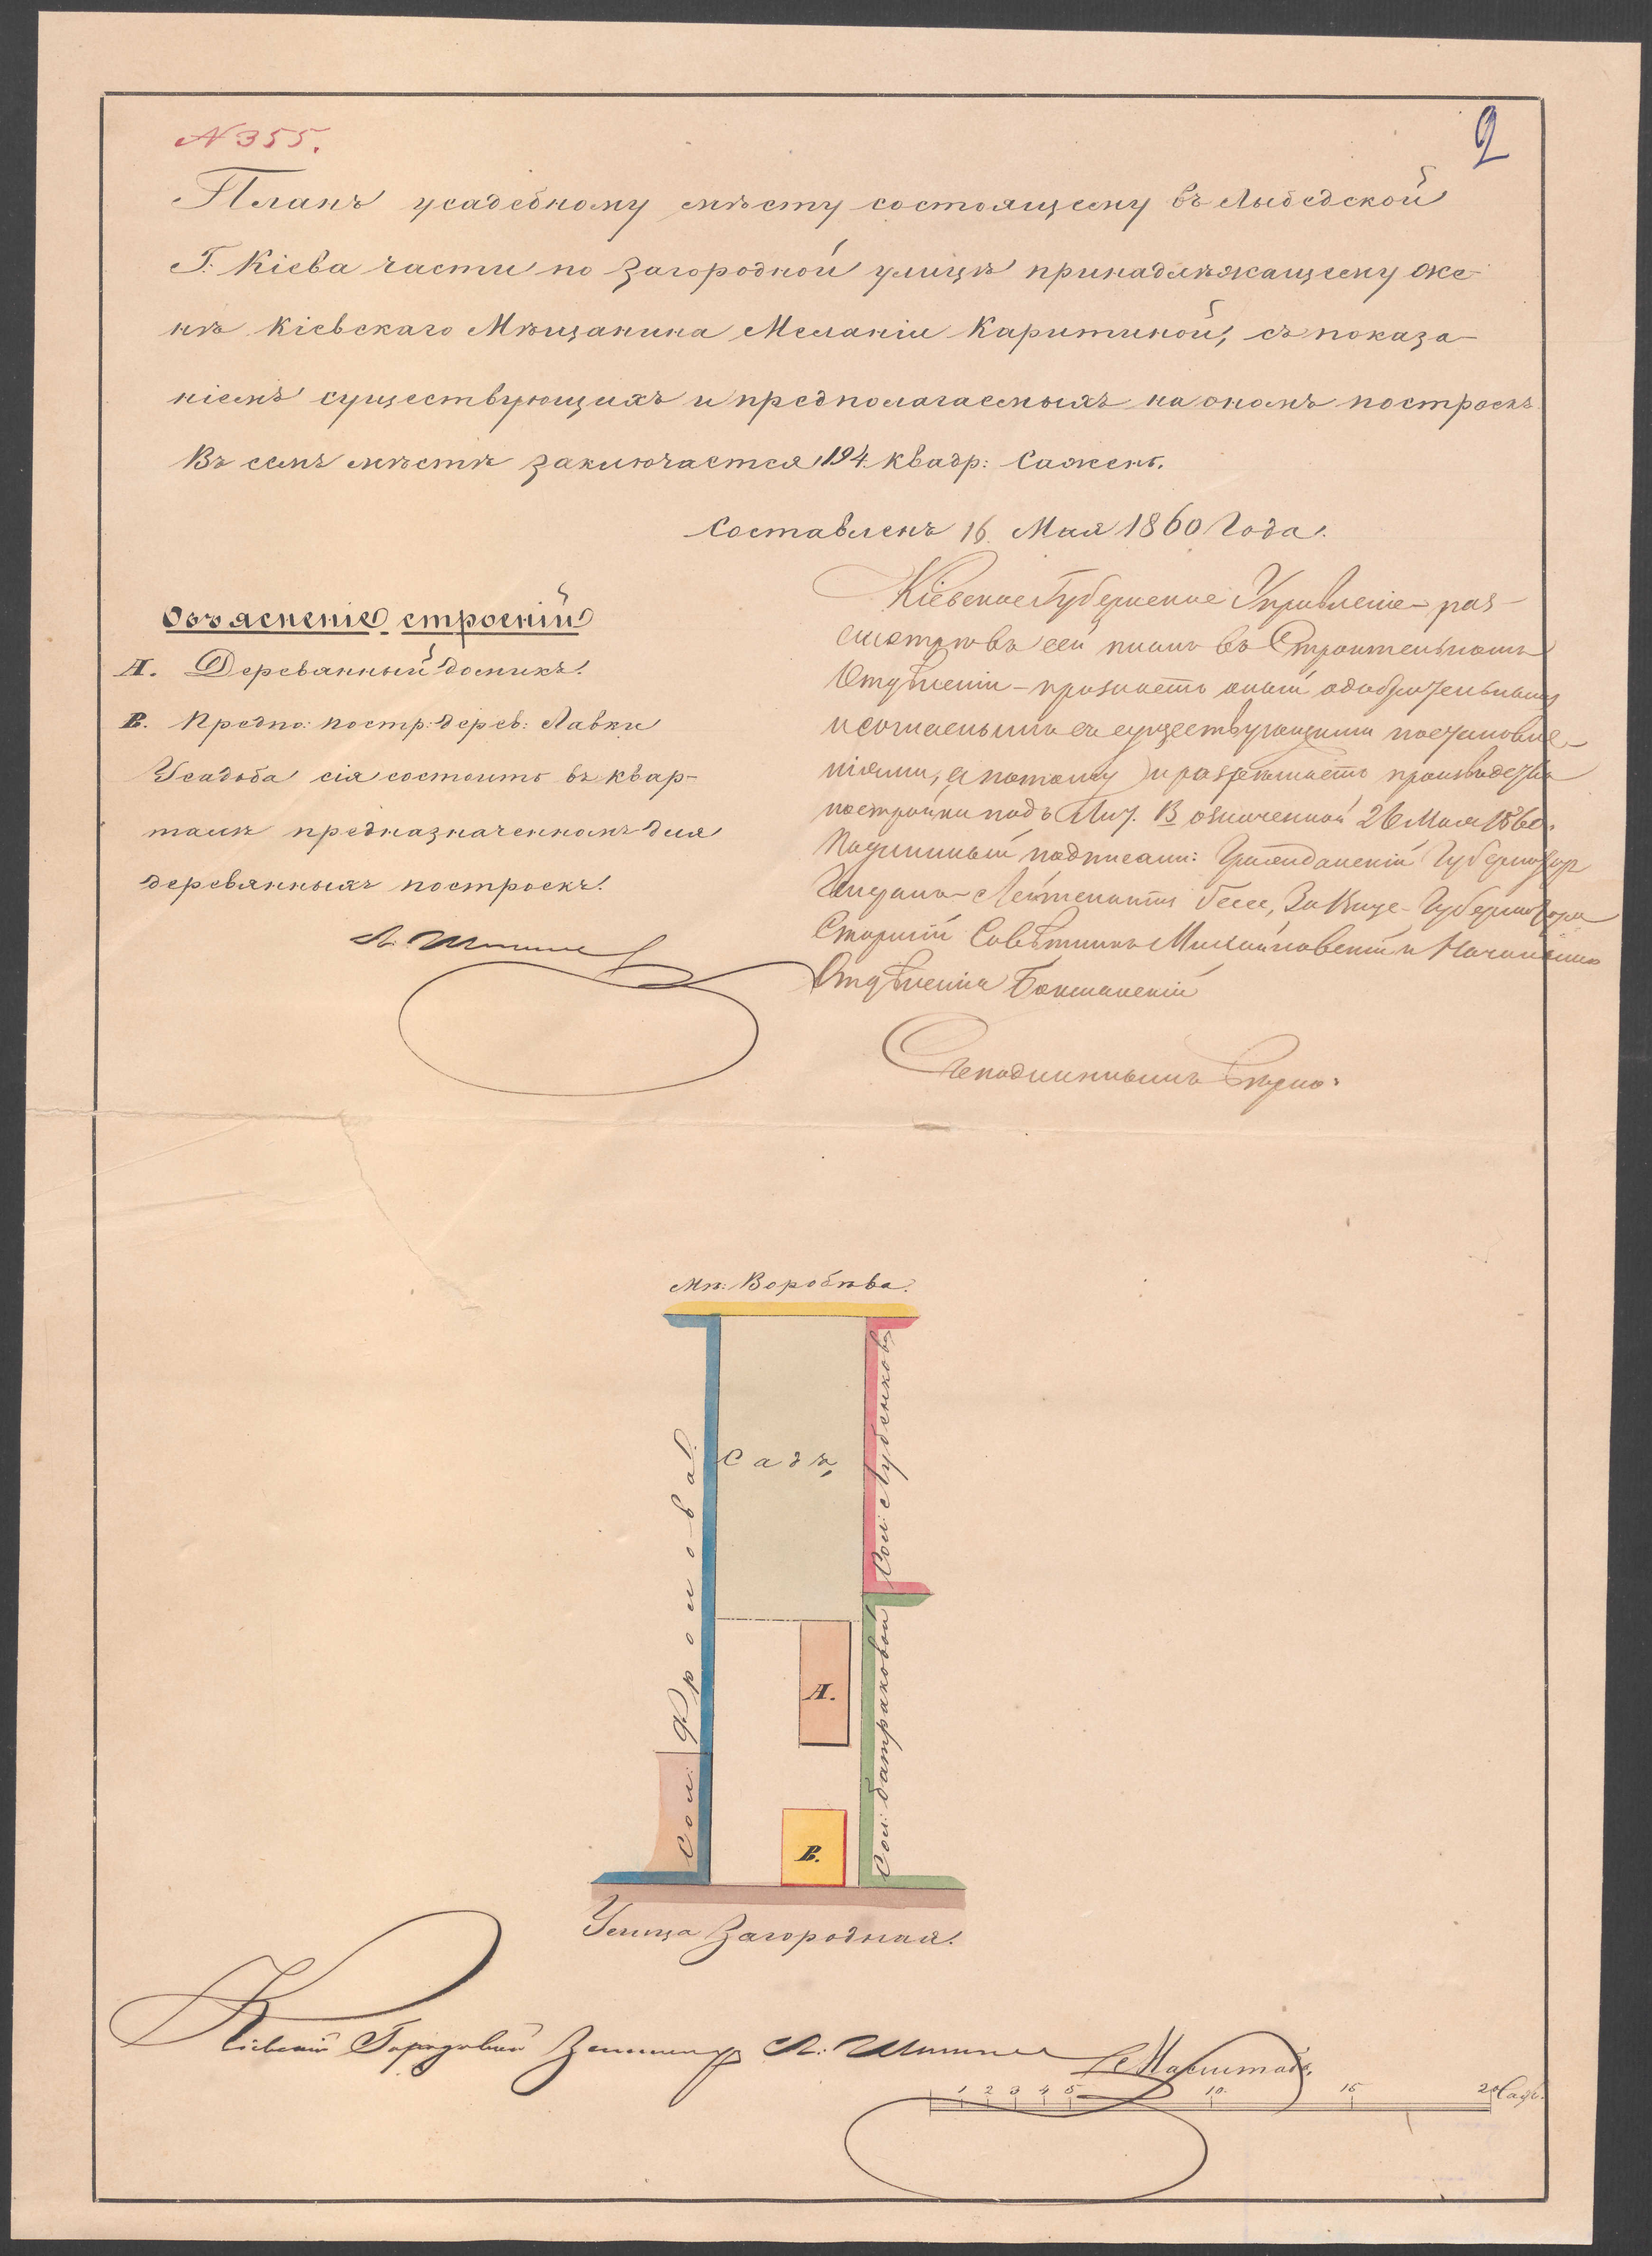 N 355.
2
Планъ усадебному мѣсту состоящему въ Лыбедской
Г. Кіева части по Загородной улицѣ принадлѣжащему же-
нѣ Кіевскаго Мѣщанина Меланіи Каритиной, съ показа-
ніемъ существующихъ и предполагаемыхъ на ономъ построекъ
Въ семъ мѣстѣ заключается 194. квадр: Сажень.
Составленъ 16. Мая 1860 Года.
Объясненіе строеній
А. Деревянный домикъ.
В. Предпо: постр: дерев: Лавки
Усадьба сія состоитъ въ квар-
талѣ предназначенномъ для
деревянныхъ построекъ.
Кіевское Губернское Управленіе – раз-
смотрѣвъ сей планъ въ Строительномъ
Отдѣленіи – признаетъ оный одобрительнымъ
и согласнымъ съ существующими постановле-
ніями, а потому и разрѣшаетъ производство
постройки подъ Лит. В означенной 26 Мая 1860.
Подлинный подписали: Гражданскій Губернаторъ
Генералъ-Лейтенантъ Гессе, За Вице-Губернатора
Старшій Совѣтникъ Михайловскій и Начальникъ
Отдѣленія
Съ подлиннымъ вѣрно:
Мѣ: Воробѣва.
Садъ,
Сом: Фролова.
Сом: Лубенкова
Сом: Батраковой
А.
В.
Улица Загородная.
Кіевскій Городовой Землемѣръ Л.
Масштабъ.
1 2 3 4 5 10. 15 20 Саж.